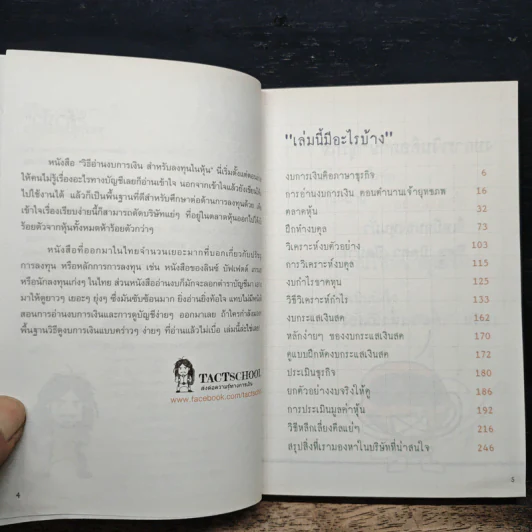 หนังสือ "วิธีอ่านงบการเงิน สำหรับลงทุนในหุ้น" นี่เริ่มตั้งแต่
ให้คนไม่รู้เรื่องอะไรทางบัญชีเลยก็อ่านเข้าใจ นอกจากเข้าใจแล้วยัง
ไปใช้งานได้ แล้วก็เป็นพื้นฐานที่ดีสำหรับศึกษาต่อด้านการลงทุนด้วย
เข้าใจเรื่องเรียบง่ายนี้ก็สามารถคัดบริษัทแย่ๆ ที่อยู่ในตลาดหุ้นออกไปได้
ร้อยตัวจากหุ้นทั้งหมดห้าร้อยตัวกว่าๆ
หนังสือที่ออกมาในไทยจำนวนเยอะมากที่บอกเกี่ยวกับ
การลงทุน หรือหลักการการลงทุน เช่น หนังสือของลินช์ บัฟเฟตต์
หรือนักลงทุนเก่งๆ ในไทย ส่วนหนังสืออ่านงบก็มักจะลอกตำราบัญชีมา
มาให้ดูยาวๆ เยอะๆ ยุ่งๆ ซึ่งมันซับซ้อนมาก ยิ่งอ่านยิ่งท้อใจ แทบไม่มี
สอนการอ่านงบการเงินและการดูบัญชีง่ายๆ ออกมาเลย ถ้าใคร
พื้นฐานวิธีดูงบการเงินแบบคร่าวๆ ง่ายๆ ที่อ่านแล้วไม่เบื่อ เล่มนี้
TACTSCHOOL
ส่งต่อความรู้ทางการเงิน
www.facebook.com/tactschool
4
"เล่มนี้มีอะไรบ้าง"
งบการเงินคือภาษาธุรกิจ 6
การอ่านงบการเงิน ตอนตำนานเจ้ายุทธภพ 16
ตลาดหุ้น 32
ฝึกทำงบดุล 73
วิเคราะห์งบตัวอย่าง 103
การวิเคราะห์งบดุล 115
งบกำไรขาดทุน 125
วิธีวิเคราะห์กำไร 133
งบกระแสเงินสด 162
หลักง่ายๆ ของงบกระแสเงินสด 170
ดูแบบฝึกหัดงบกระแสเงินสด 172
ประเมินธุรกิจ 180
ยกตัวอย่างงบจริงให้ดู 186
การประเมินมูลค่าหุ้น 192
วิธีหลีกเลี่ยงดีลแย่ๆ 216
สรุปสิ่งที่เรามองหาในบริษัทที่น่าสนใจ 246
5